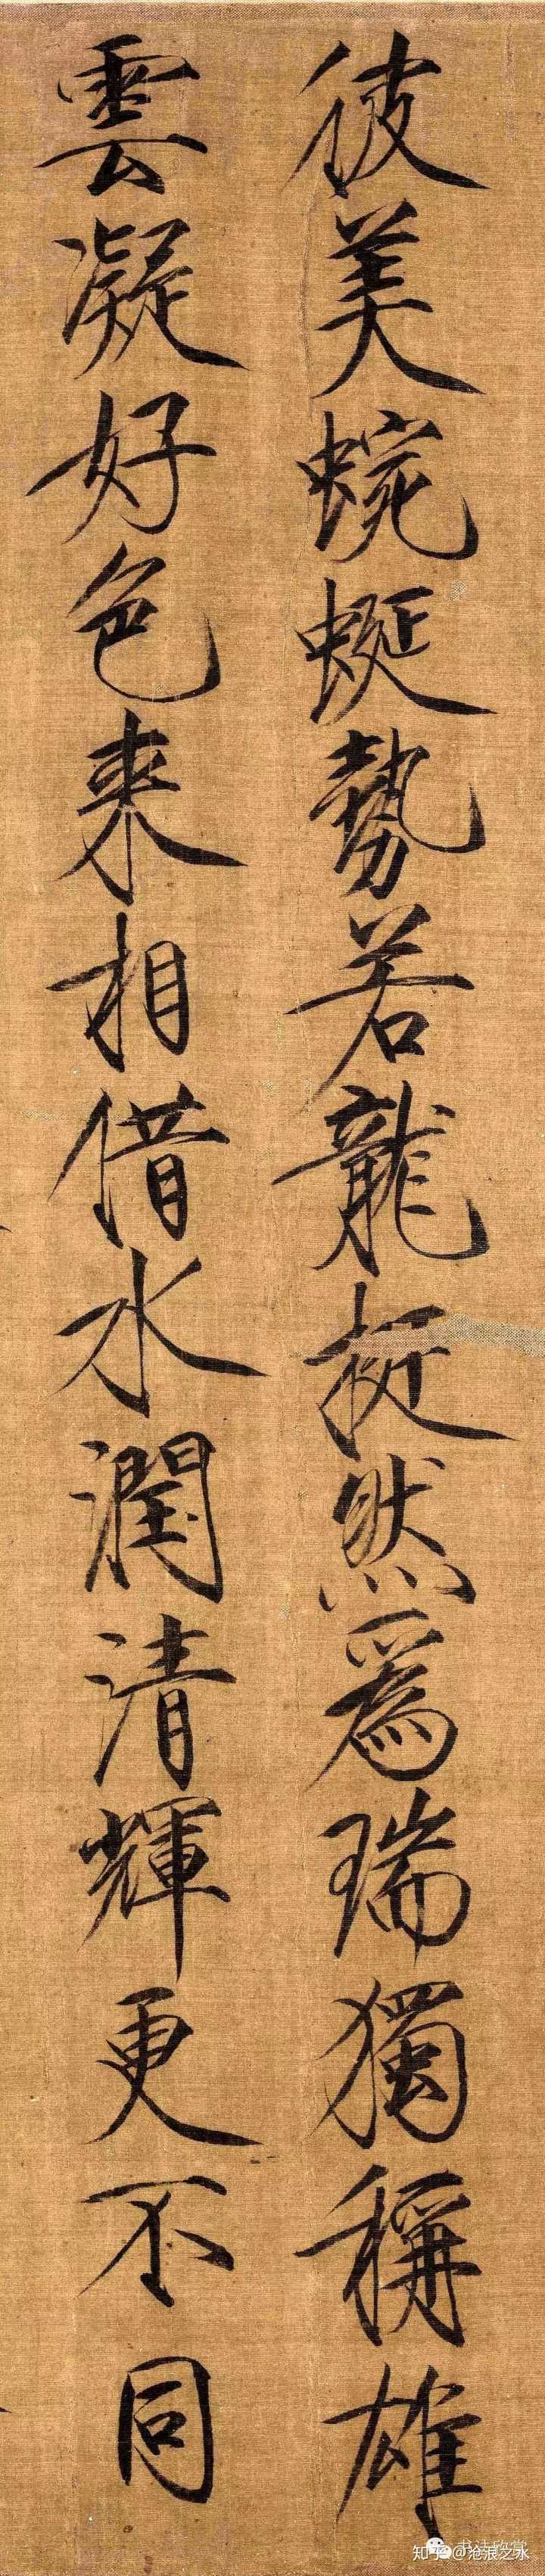 彼美蜿蜒勢若龍挺然為瑞獨稱雄
雲凝好色來相借水潤清輝更不同
知乎 @沧浪之水
书法欣赏